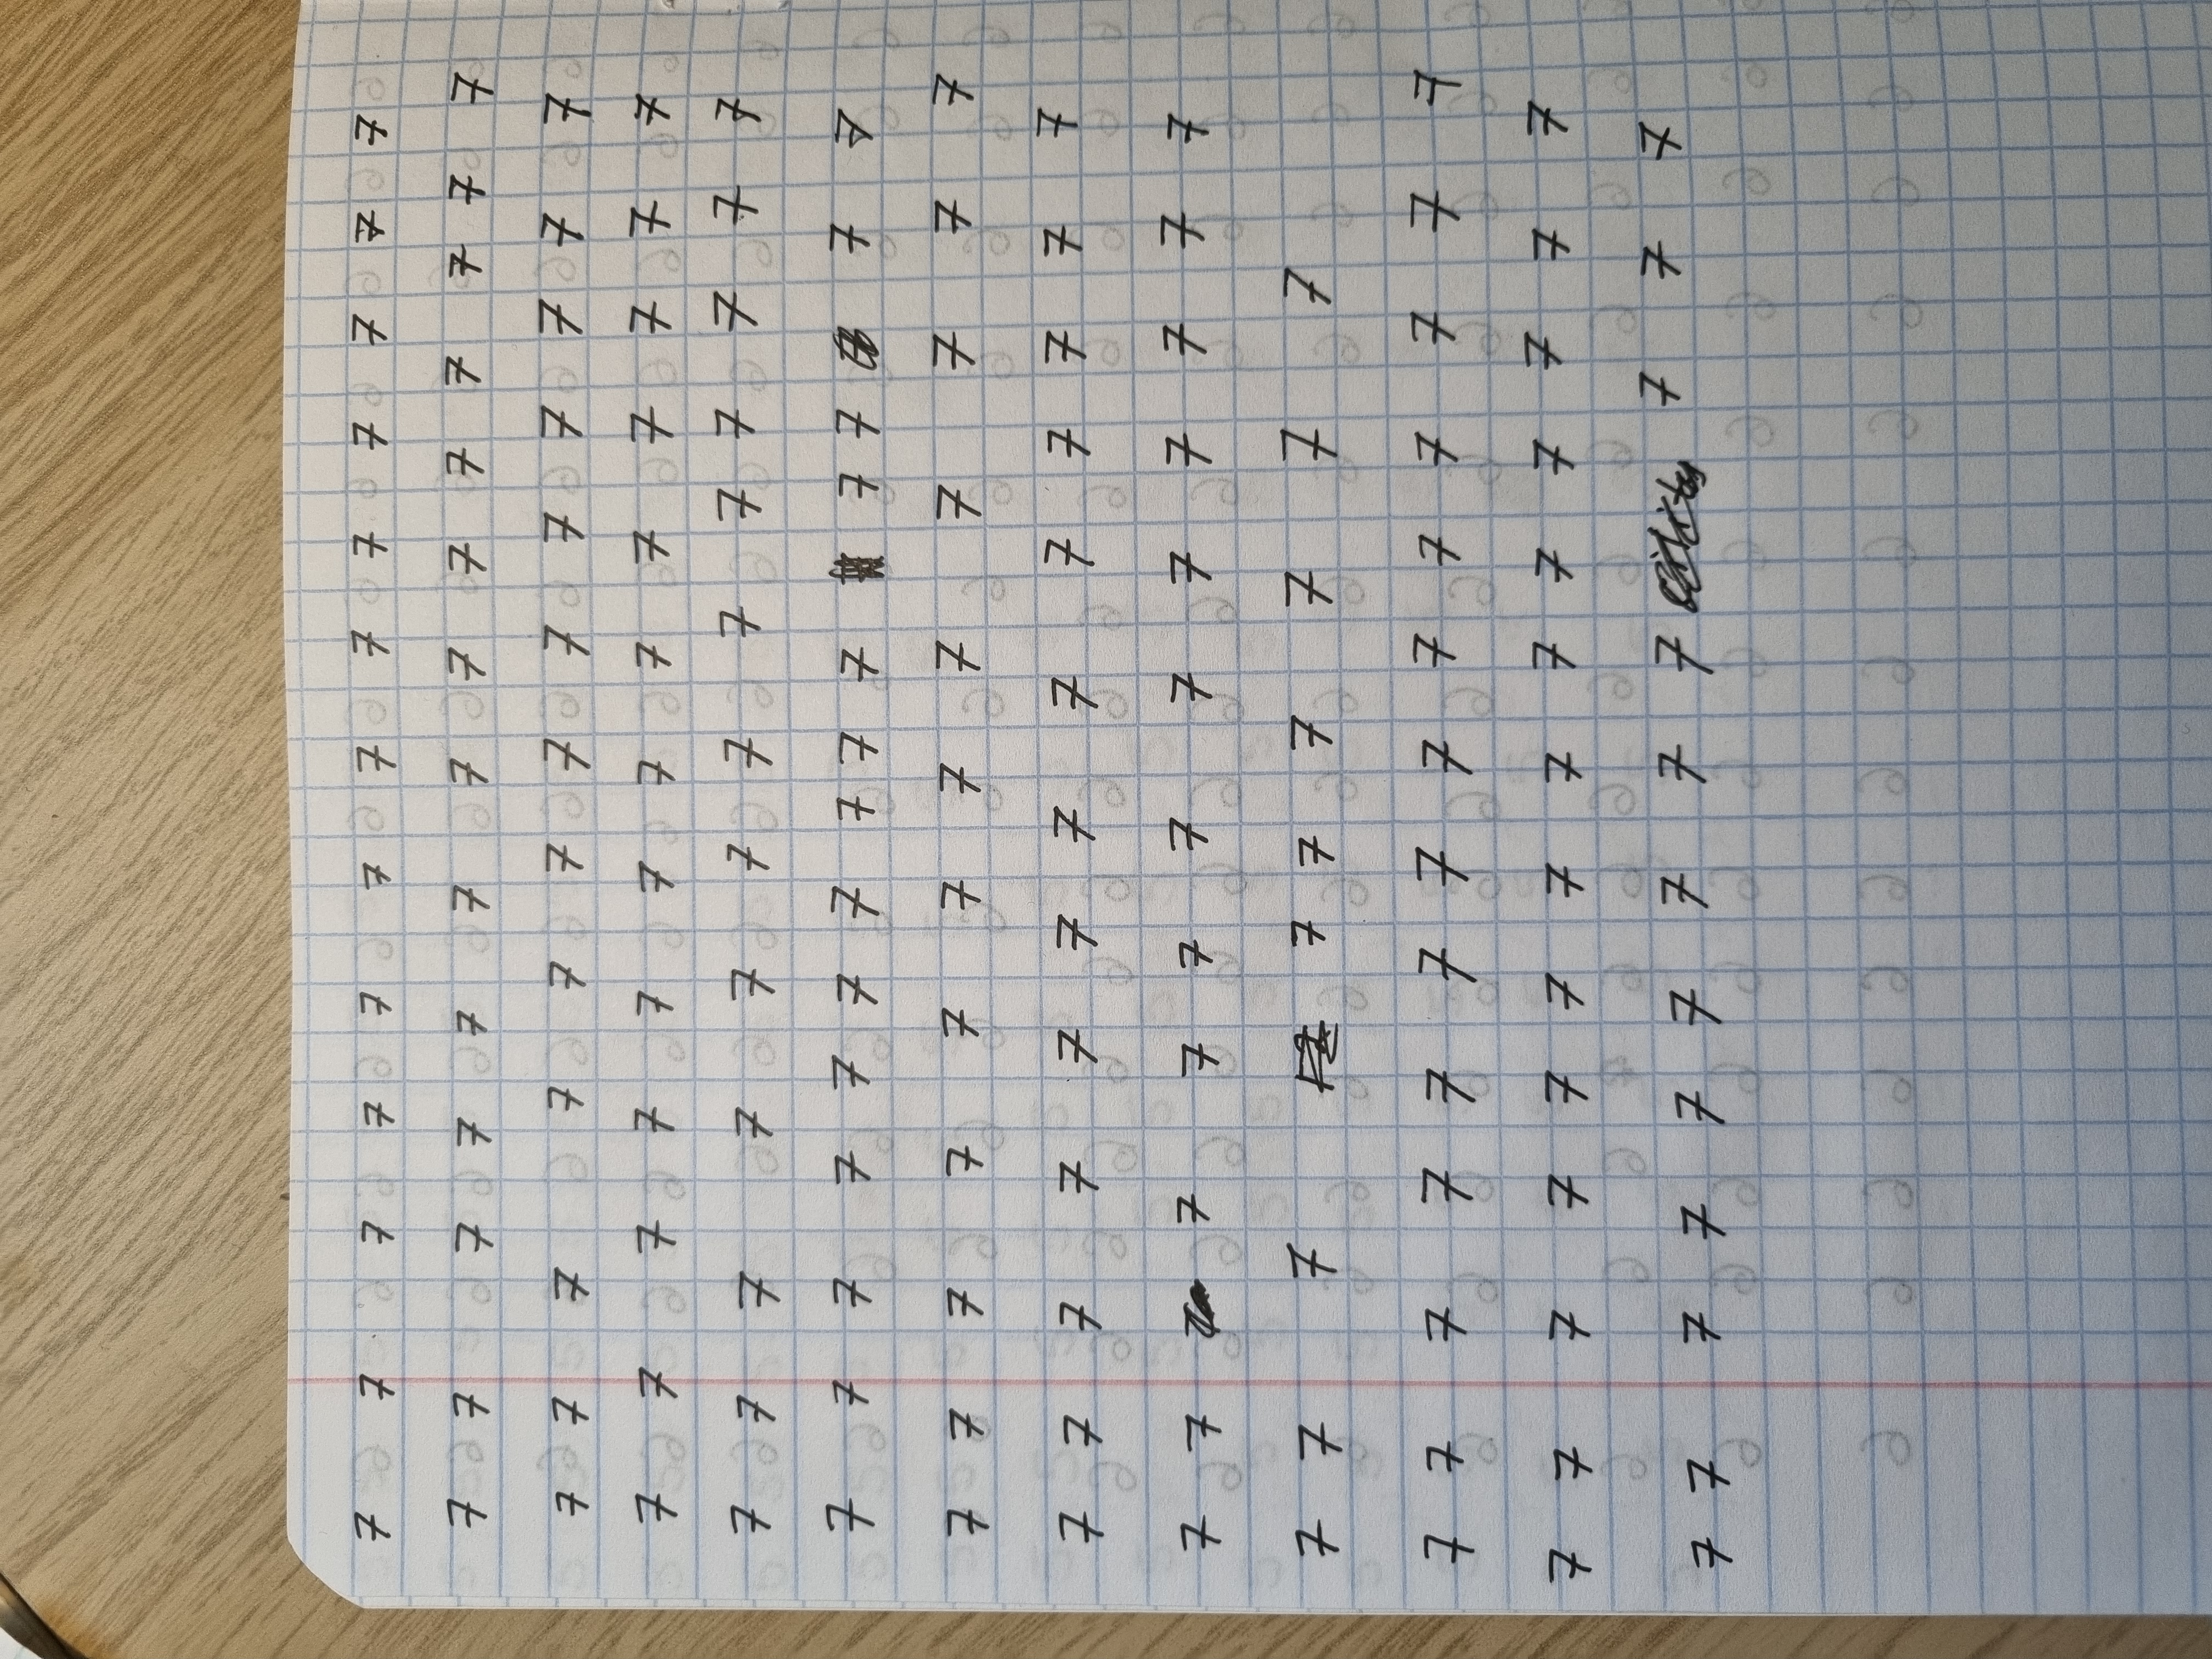 7 7 7 7 7 7 7 7 7 7 7 7 7
7 7 7 7 7 7 7 7 7 7 7 7 7 7
7 7 7 7 7 7 7 7 7 7 7 7 7
7 7 7 7 7 7 7 7 7 7 7 7 7
7 7 7 7 7 7 7 7 7 7 7 7 7
7 7 7 7 7 7 7 7 7 7 7 7 7 7
7 7 7 7 7 7 7 7 7 7 7 7
7 7 7 7 7 7 7 7 7 7 7 7 7
7 7 7 7 7 7 7 7 7 7 7 7
7 7 7 7 7 7 7 7 7
7 7 7 7 7 7 7 7 7 7 7 7 7 7
7 7 7 7 7 7 7 7 7 7 7 7 7 7
7 7 7 7 7 7 7 7 7 7 7 7